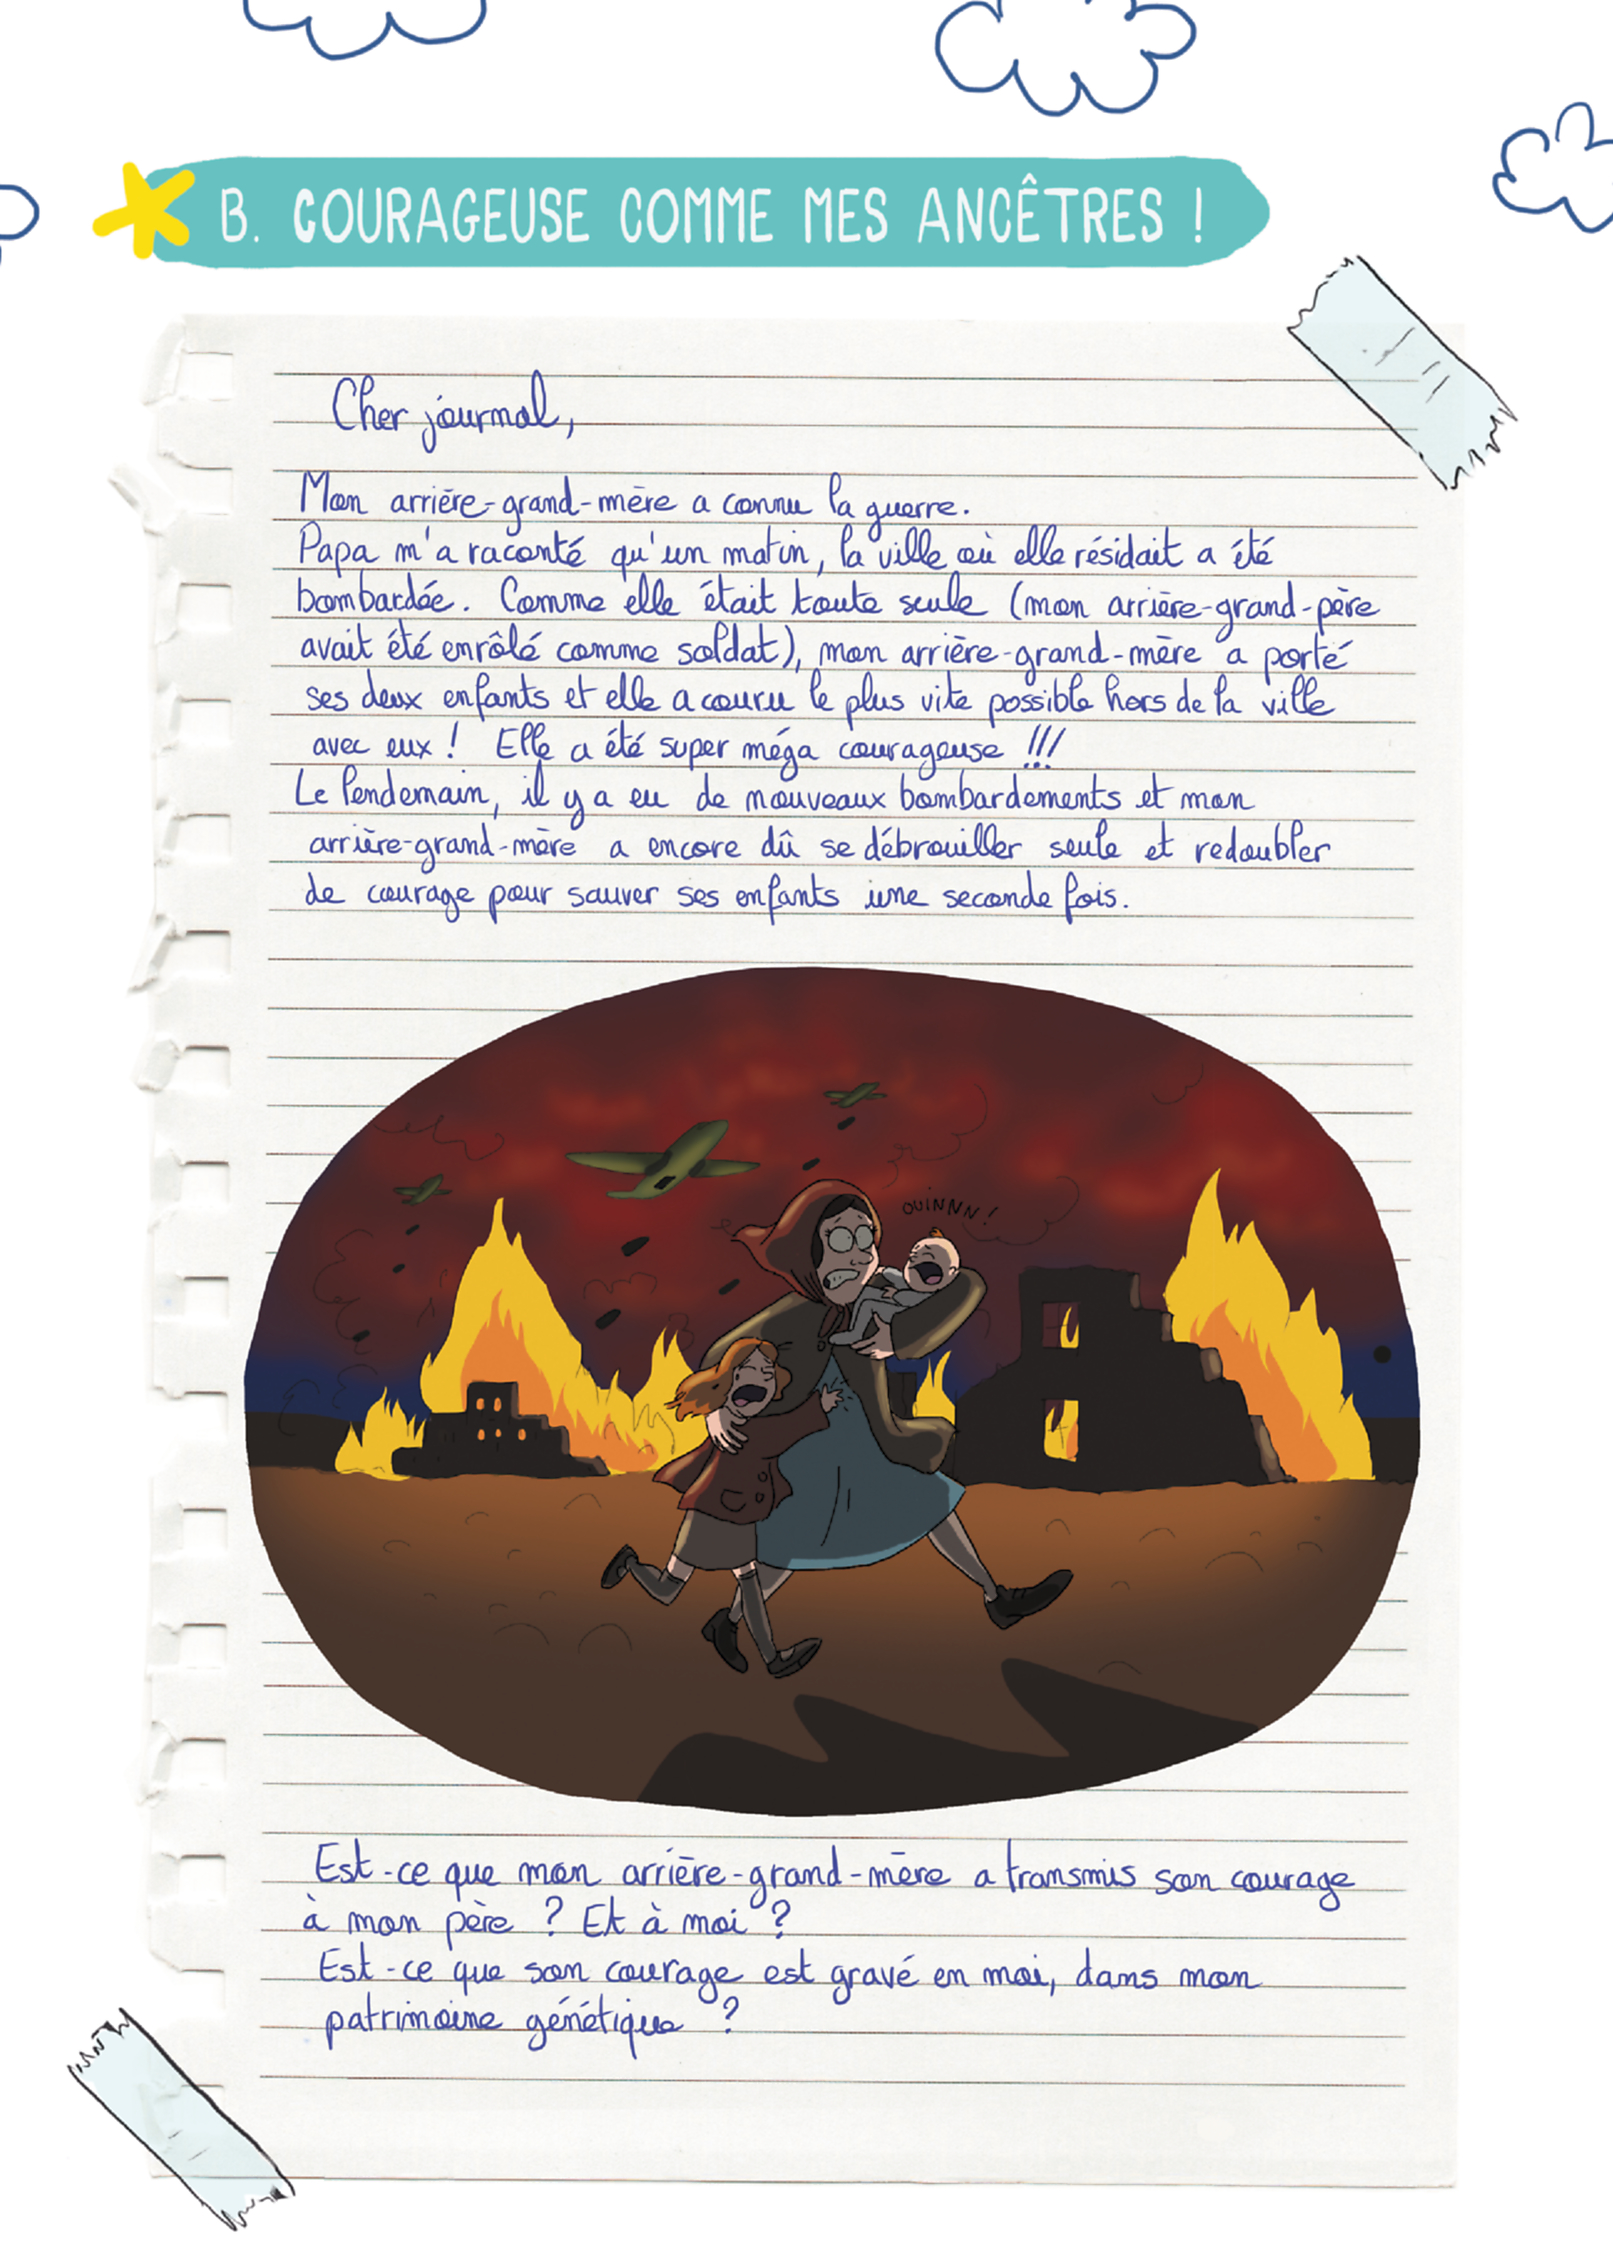 B. COURAGEUSE COMME MES ANCÊTRES !
Cher journal,
Mon arrière-grand-mère a connu la guerre.
Papa m'a raconté qu'un matin, la ville où elle résidait a été
bombardée. Comme elle était toute seule (mon arrière-grand-père
avait été enrôlé comme soldat), mon arrière-grand-mère a porté
ses deux enfants et elle a couru le plus vite possible hors de la ville
avec eux ! Elle a été super méga courageuse !!!
Le lendemain, il y a eu de nouveaux bombardements et mon
arrière-grand-mère a encore dû se débrouiller seule et redoubler
de courage pour sauver ses enfants une seconde fois.
OUINNN !
Est-ce que mon arrière-grand-mère a transmis son courage
à mon père ? Et à moi ?
Est-ce que son courage est gravé en moi, dans mon
patrimoine génétique ?